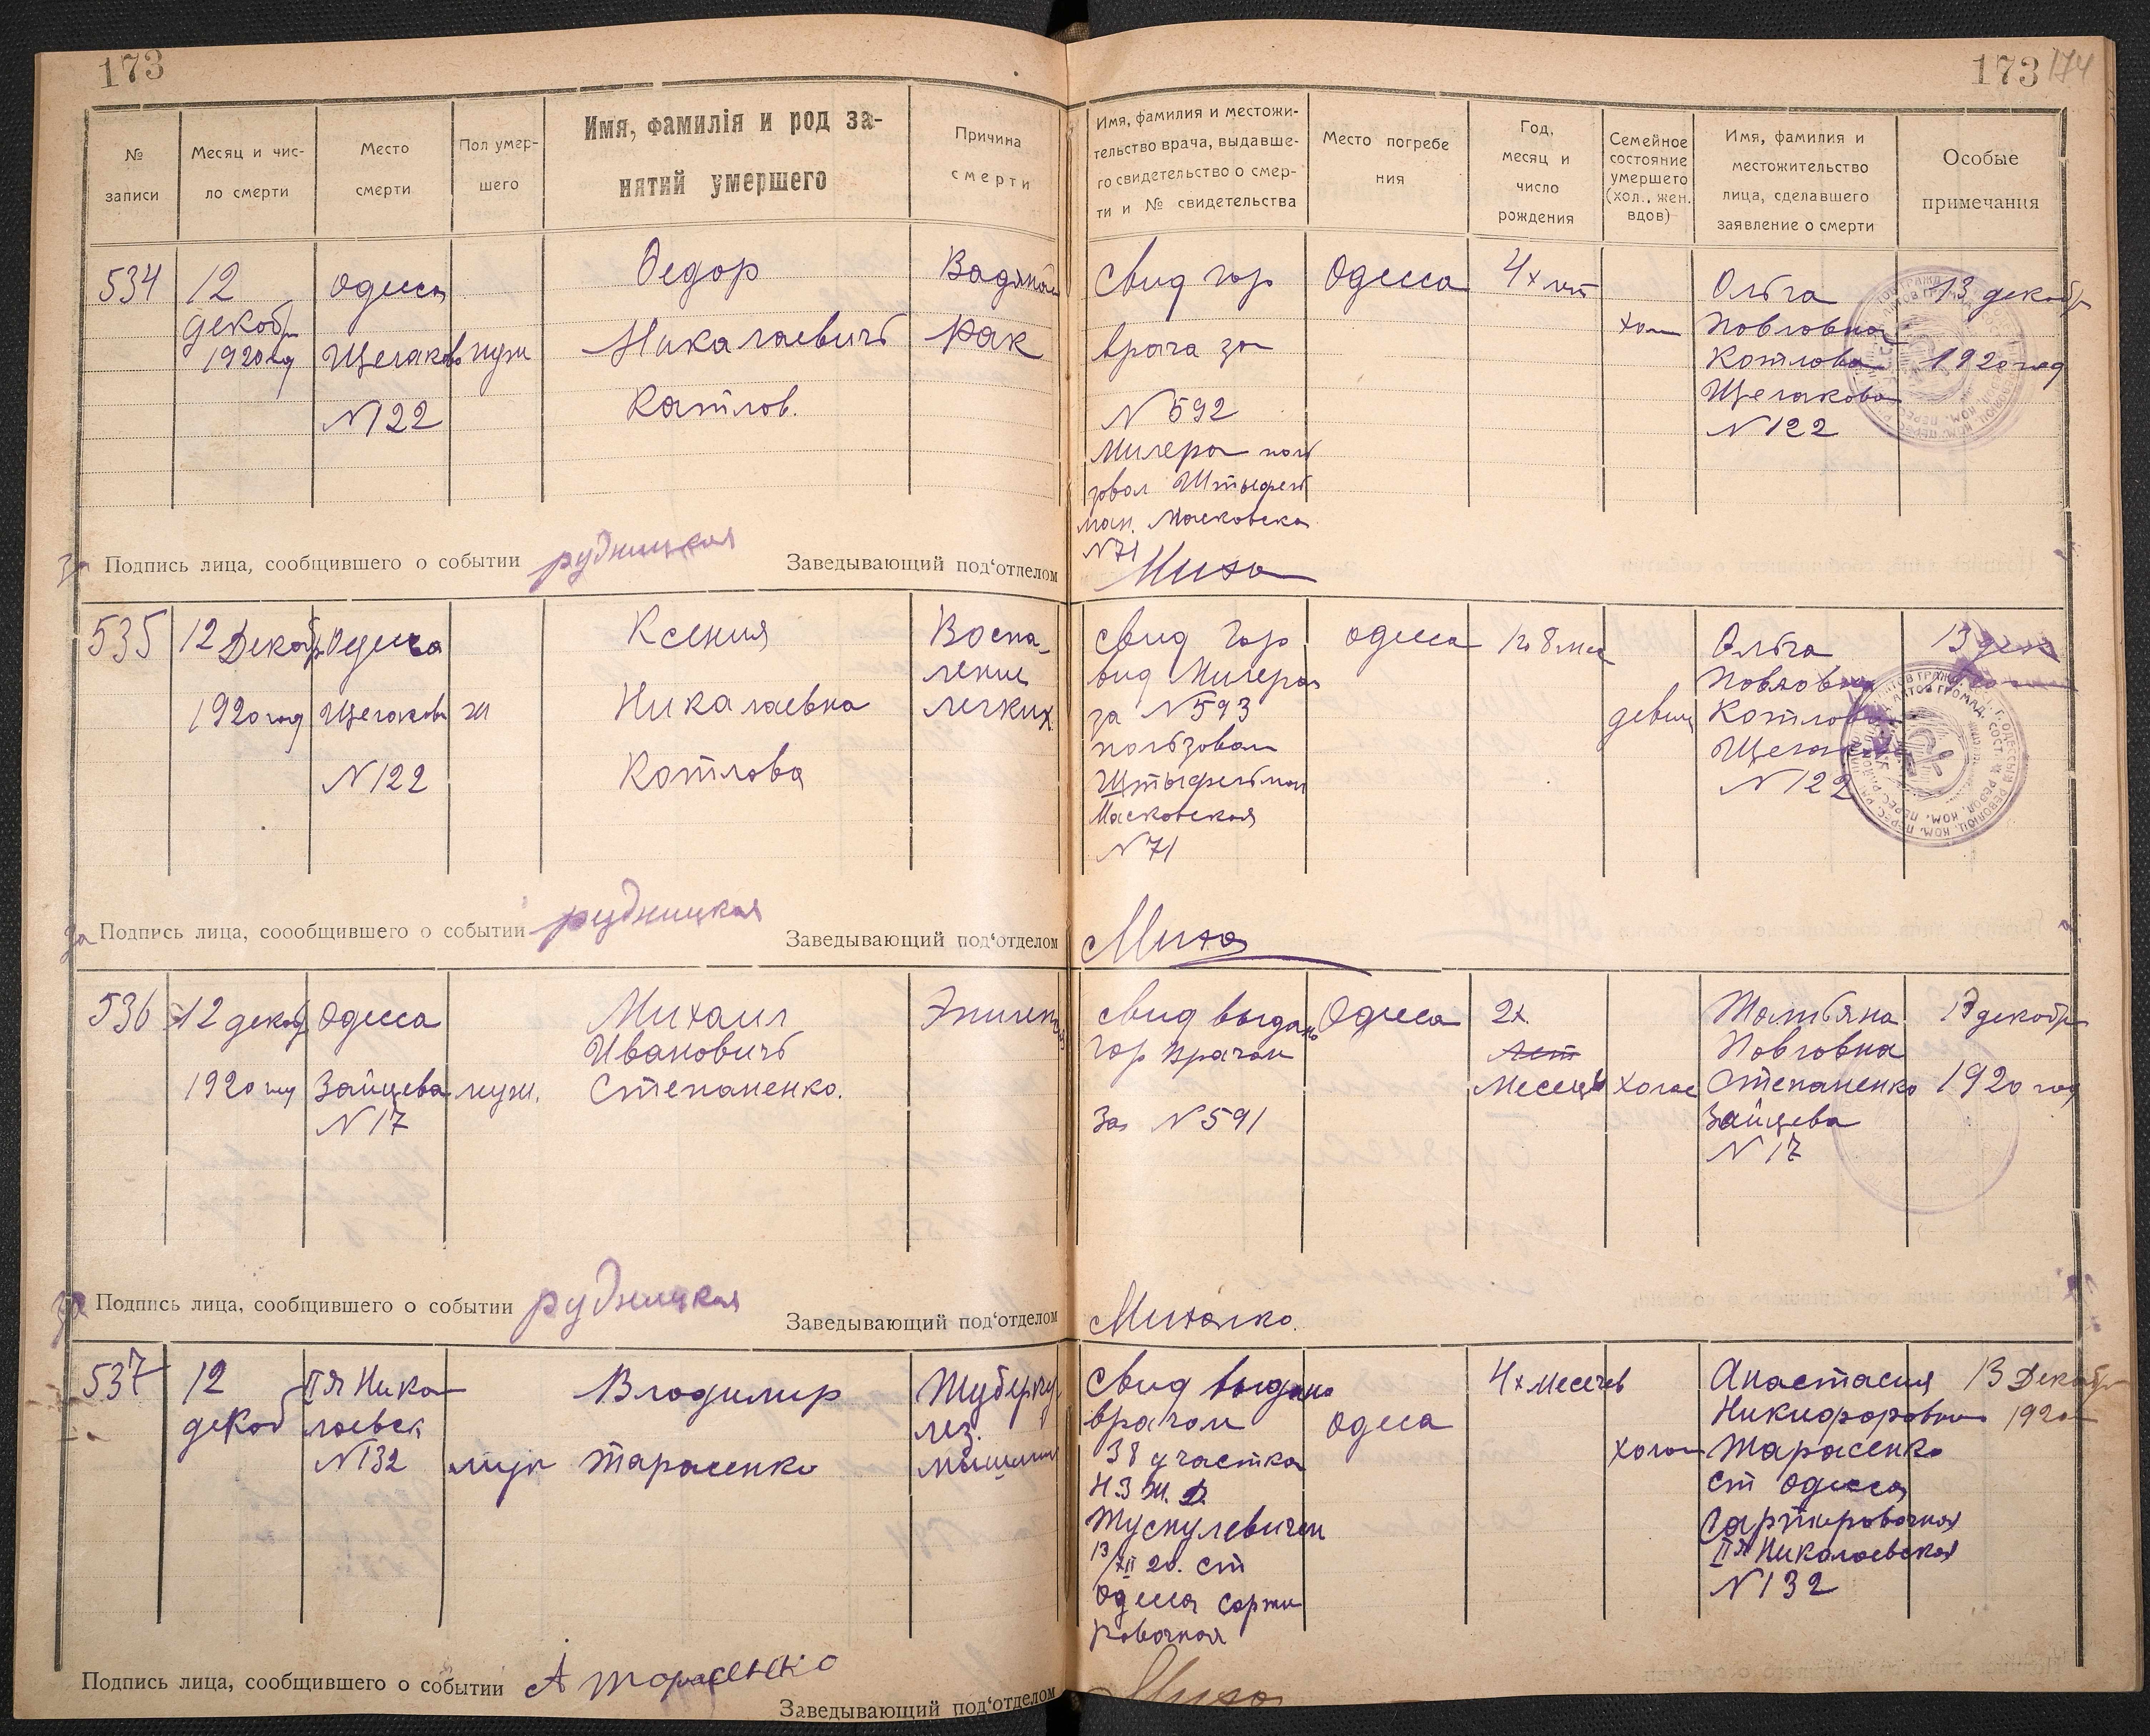 173
173 174
№ записи
Месяц и чис-
ло смерти
Место
смерти
Пол умер-
шего
Имя, фамилія и род за-
нятий умершего
Причина
смерти
Имя, фамилия и местожи-
тельство врача, выдавше-
го свидетельство о смер-
ти и № свидетельства
Место погребе
ния
Год,
месяц и
число
рождения
Семейное
состояние
умершего
(хол., жен.
вдов)
Имя, фамилия и
местожительство
лица, сделавшего
заявление о смерти
Особые
примечания
534
12
декабр
1920 год
Одесса
Щегаково
N 122
муж
Федор
Никалаевичъ
Катлов.
Вадяной
Рак
Свид гор
врача за
N 592
Милера поль
зовал Штыфель
ман. Масковска
N 71
Одесса
4х лет
хол
Ольга
Повловна
Котлова
Щегакова
N 122
13 декабр
1920 год
За Подпись лица, сообщившего о событии рудницкая
Заведывающий под‘отделом
535
12 Декабр
1920 год
Одесса
Щегакова
N 122
ж
Ксения
Никалаевна
Котлова
Воспа-
ление
легких.
Свид Гор
вид Милера
за N 593
пользовал
Штыфельман
Масковская
N 71
Одесса
1г 8 мес
девиц
Ольга
Повловна
Котлова
Щегакова
N 122
13 дек
За Подпись лица, соообщившего о событии рудницкая
Заведывающий под‘отделом
536
12 декабр
1920 год
Одесса
Зайцева
N 17
муж.
Михаил
Ивановичъ
Степаненко.
Эпилепсия
Свид выдано
гор Врачом
За N 591
Одесса
2х
лет
Месецев
холос
Татьяна
Повловна
Степаненко
Зайцева
N 17
13 декабр
1920 год
За Подпись лица, сообщившего о событии рудницкая
Заведывающий под‘отделом
Михалко.
537
12
декаб
II я Нико
лаевск
N 132
муж
Владимир
Тарасенко
Туберку
лез.
Свид выдано
врачом
38 участка
Ю.З Ж. Д.
13/XII 20. ст
Одесса Сорти
ровочная
Одеса
4х месецев
холос
Анастасия
Никифоровна
Тарасенко
ст Одесса
Сартировочная
II я Николаевская
N 132
13 Декабр
1920
Подпись лица, сообщившего о событии А Тарасенко
Заведывающий под‘отделом